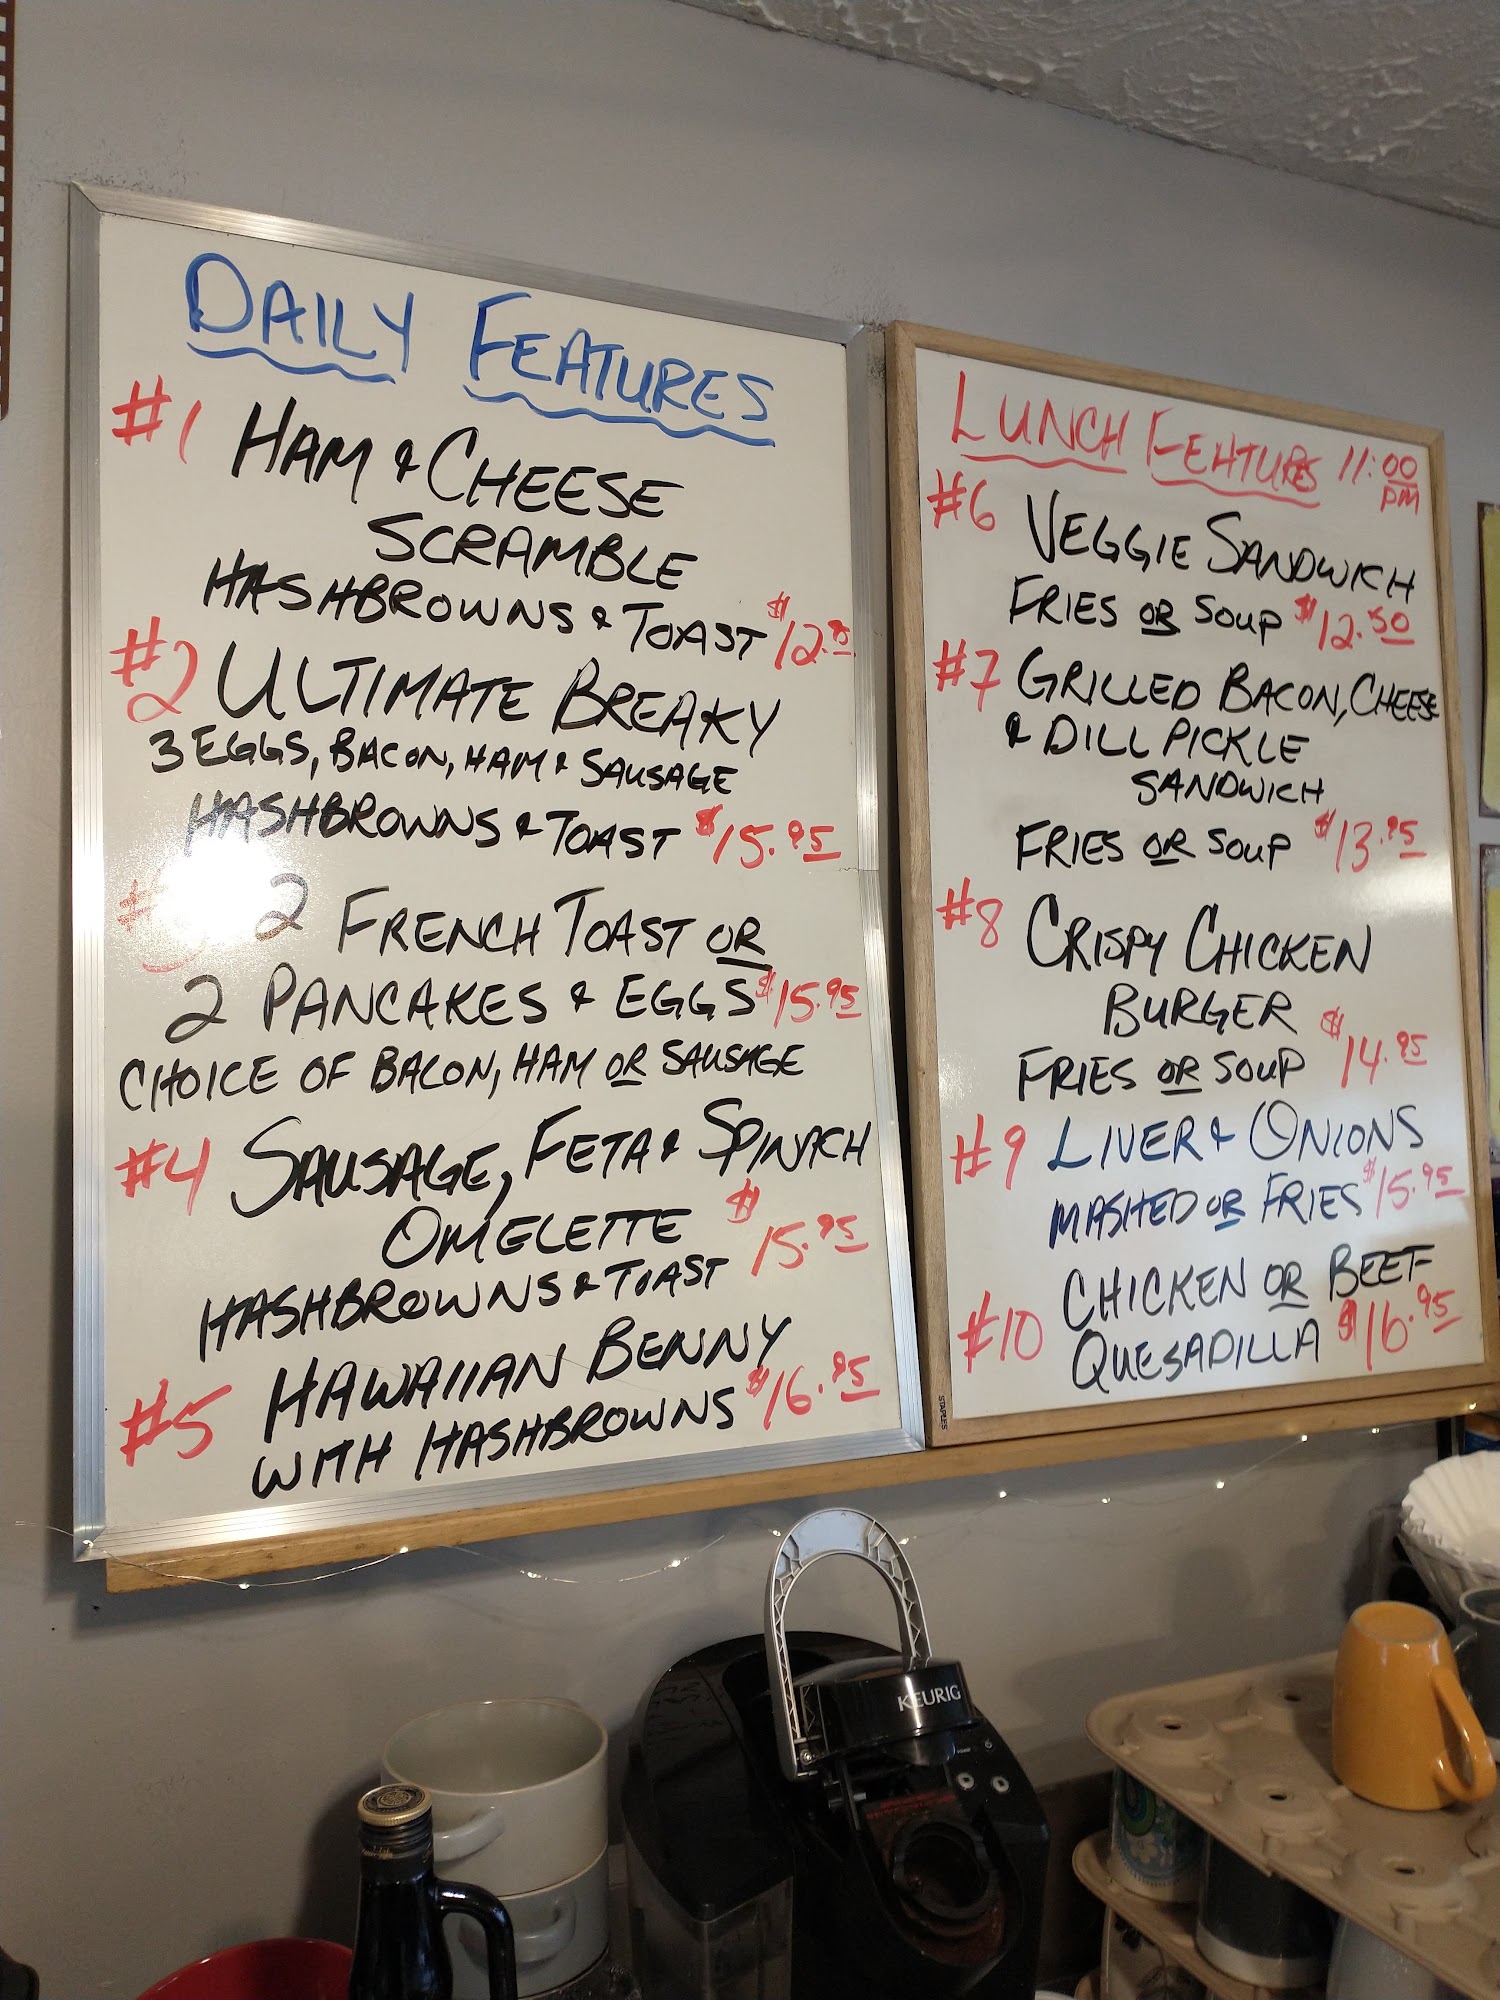 DAILY FEATURES
#1 HAM & CHEESE
SCRAMBLE
HASHBROWNS & TOAST
#2 ULTIMATE BREAKY
3 EGGS, BACON, HAM & SAUSAGE
HASHBROWNS & TOAST $15.95
2 FRENCH TOAST OR
2 PANCAKES & EGGS $15.95
CHOICE OF BACON, HAM OR SAUSAGE
#4 SAUSAGE, FETA & SPINICH
OMELETTE $15.95
HASHBROWNS & TOAST
#5 HAWAIIAN BENNY
WITH HASHBROWNS $16.95
LUNCH FEATURES 11:00
PM
#6 VEGGIE SANDWICH
FRIES OR SOUP $12.50
#7 GRILLED BACON, CHEESE
& DILL PICKLE
SANDWICH
FRIES OR SOUP $13.95
#8 CRISPY CHICKEN
BURGER
FRIES OR SOUP $14.95
#9 LIVER & ONIONS
MASHED OR FRIES $15.95
#10 CHICKEN OR BEEF
QUESADILLA $16.95
STAPLES
KEURIG